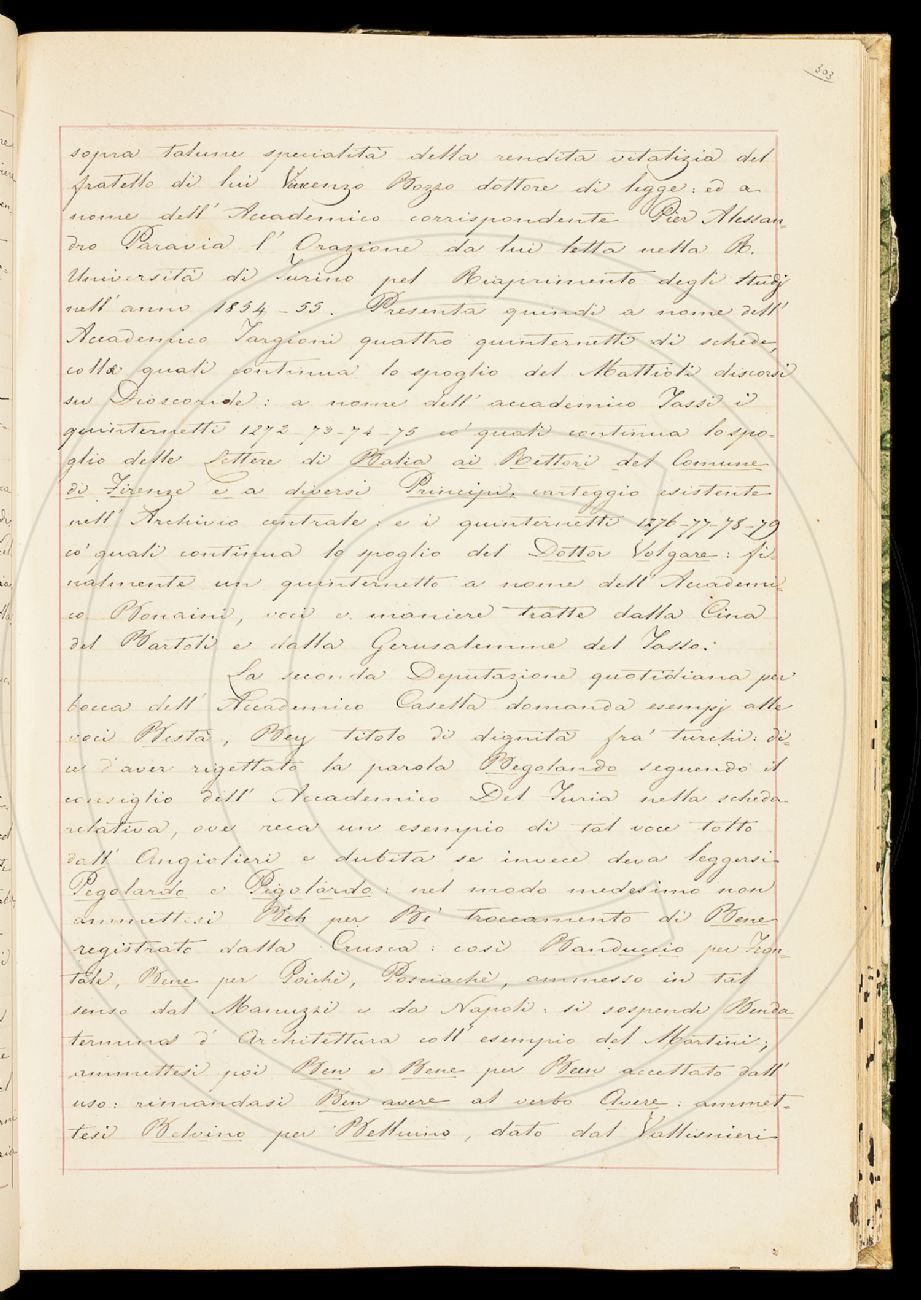 303
sopra talune specialità della rendita vitalizia del
fratello di lui Vincenzo Bozzo dottore di legge: ed a
nome dell' Accademico corrispondente Pier Alessan-
dro Paravia l' Orazione da lui letta nella R.
Università di Turino pel Riaprimento degli Studj
nell' anno 1854-55. Presenta quindi a nome dell'
Accademico Targioni quattro quinternetti di schede,
colle quali continua lo spoglio del Mattioli discorsi
su Dioscoride: a nome dell' accademico Tassi i
quinternetti 1272-73-74-75 co' quali continua lo spo-
glio delle Lettere di Balia ai Rettori del Comune
di Firenze e a diversi Principi, carteggio esistente
nell' Archivio centrale: e i quinternetti 1276-77-78-79
co' quali continua lo spoglio del Dottor Volgare: fi-
nalmente un quinternetto a nome dell' Accademi-
co Bonaini, voci e maniere tratte dalla Cina
del Bartoli e dalla Gerusalemme del Tasso.
La seconda Deputazione quotidiana per
bocca dell' Accademico Casella domanda esempj alle
voci Bestà, Bey titolo di dignità fra' turchi: di-
ce d'aver rigettato la parola Begolardo seguendo il
consiglio dell' Accademico Del Furia nella scheda
relativa, ove reca un esempio di tal voce tolto
dall' Angiolieri e dubita se invece deva leggersi
Pegolardo e Pegolòrdo: nel modo medesimo non
ammettesi Beh per Be' troncamento di Bene
registrato dalla Crusca: così Benduccio per Fron-
tale, Bene per Poichè, Posciachè, ammesso in tal
senso dal Manuzzi e da Napoli: si sospende Benda
termine d' Architettura coll' esempio del Martini;
ammettesi poi Ben e Bene per Been accettato dall'
uso: rimandasi Ben avere al verbo Avere: ammet-
tesi Belvino per Belluino, dato dal Vallisnieri